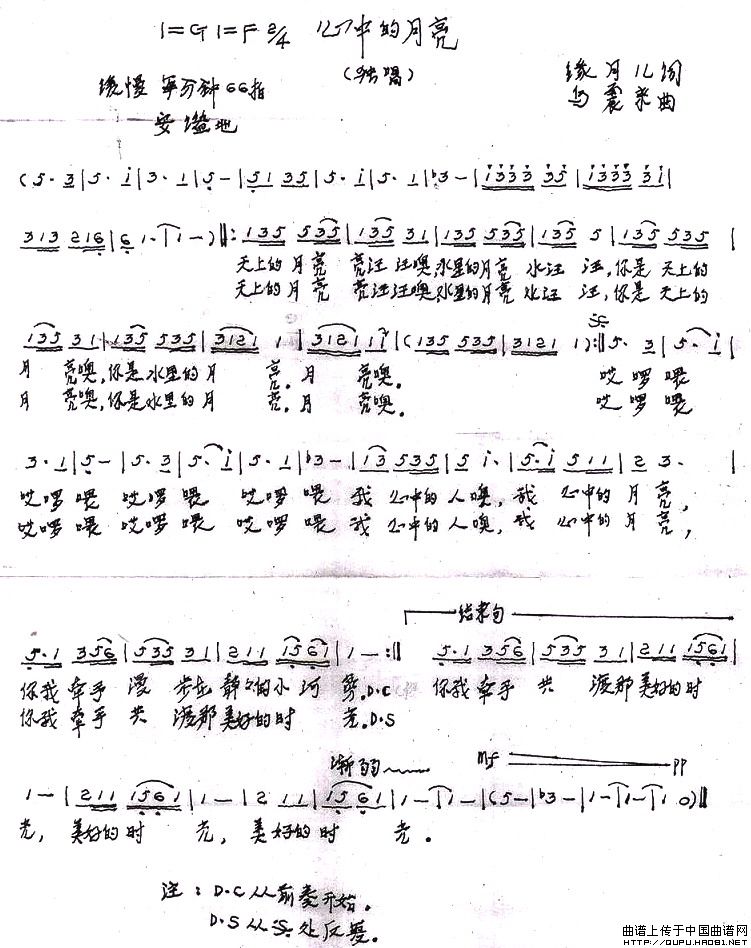 1=G 1=F 2/4 心中的月亮
(独唱)
缓慢 每分钟66拍
安谧地
缘月儿词
乌震来曲
(5· 3|5· i|3· 1|5-|51 35|5· i|5· 1|♭3-|i333 35|i333 3i|
313 216|6 1·|1-)‖:135 535|135 31|135 535|135 5|135 535|
天上的月亮 亮汪汪噢,水里的月亮 水汪汪,你是天上的
天上的月亮 亮汪汪噢,水里的月亮 水汪汪,你是天上的
135 31|135 535|3121 1|3121 1i|(135 535|3121 1):‖5· 3|5· i|
月 亮噢,你是水里的月 亮.月 亮噢. 哎啰喂
月 亮噢,你是水里的月 亮.月 亮噢. 哎啰喂
3· 1|5-|5· 3|5· i|5· 1|♭3-|13 535|5 i·|5·i 511|2 3·|
哎啰喂 哎啰喂 哎啰喂 我心中的人噢,我心中的月亮,
哎啰喂 哎啰喂 哎啰喂 我心中的人噢,我心中的月亮,
结束句
5·1 356|535 31|211 1561|1-:‖ 5·1 356|535 31|211 1561|
你我牵手漫步在静静的小河旁.D.C 你我牵手共渡那美好的时
你我牵手共渡那美好的时光.D.S
渐弱 mf pp
1-|211 1561|1-|2 11|15 61|1-|1-|(5-|♭3-|1-|1-|1 0)‖
光,美好的时光,美好的时光.
注:D.C从前奏开始.
D.S从𝄋处反复.
曲谱上传于中国曲谱网
http://QUPU.HAO81.NET